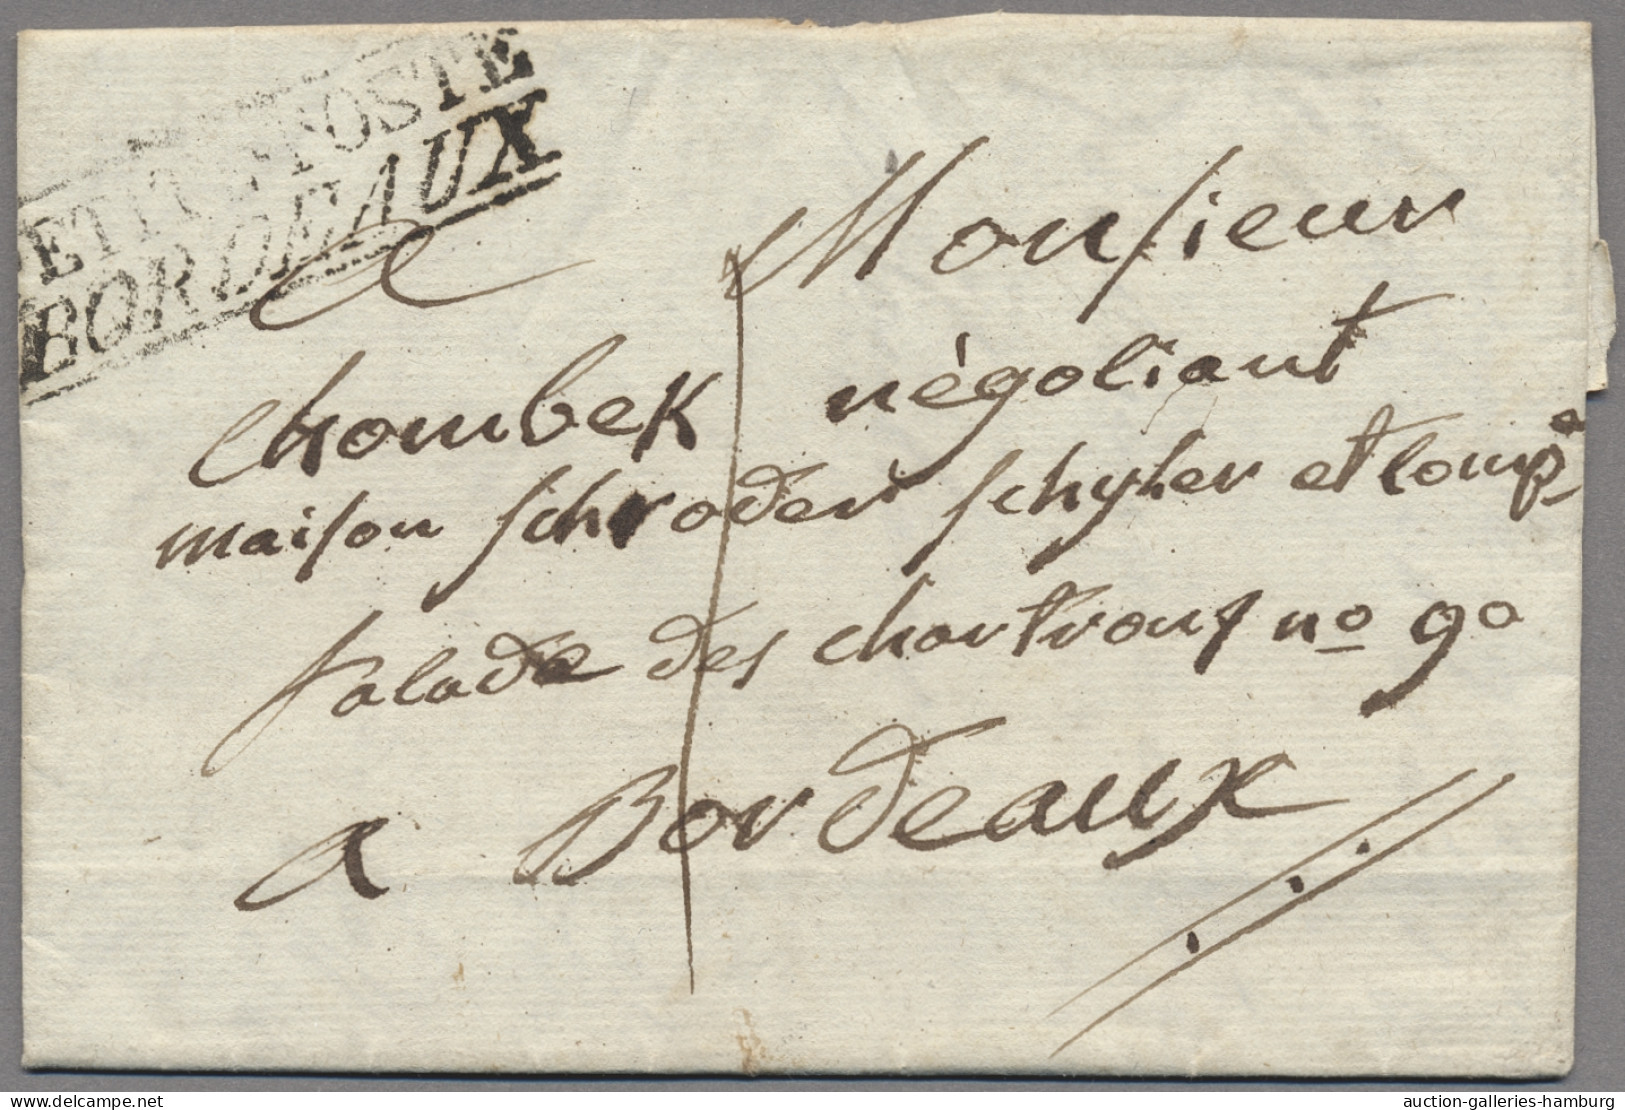 PETITE POSTE
BORDEAUX
A Monsieur
Chombek négociant
maison schroder schyler et Comp.e
façade des chartrons no 90
a Bordeaux
delcampe.com
auction-galleries-hamburg